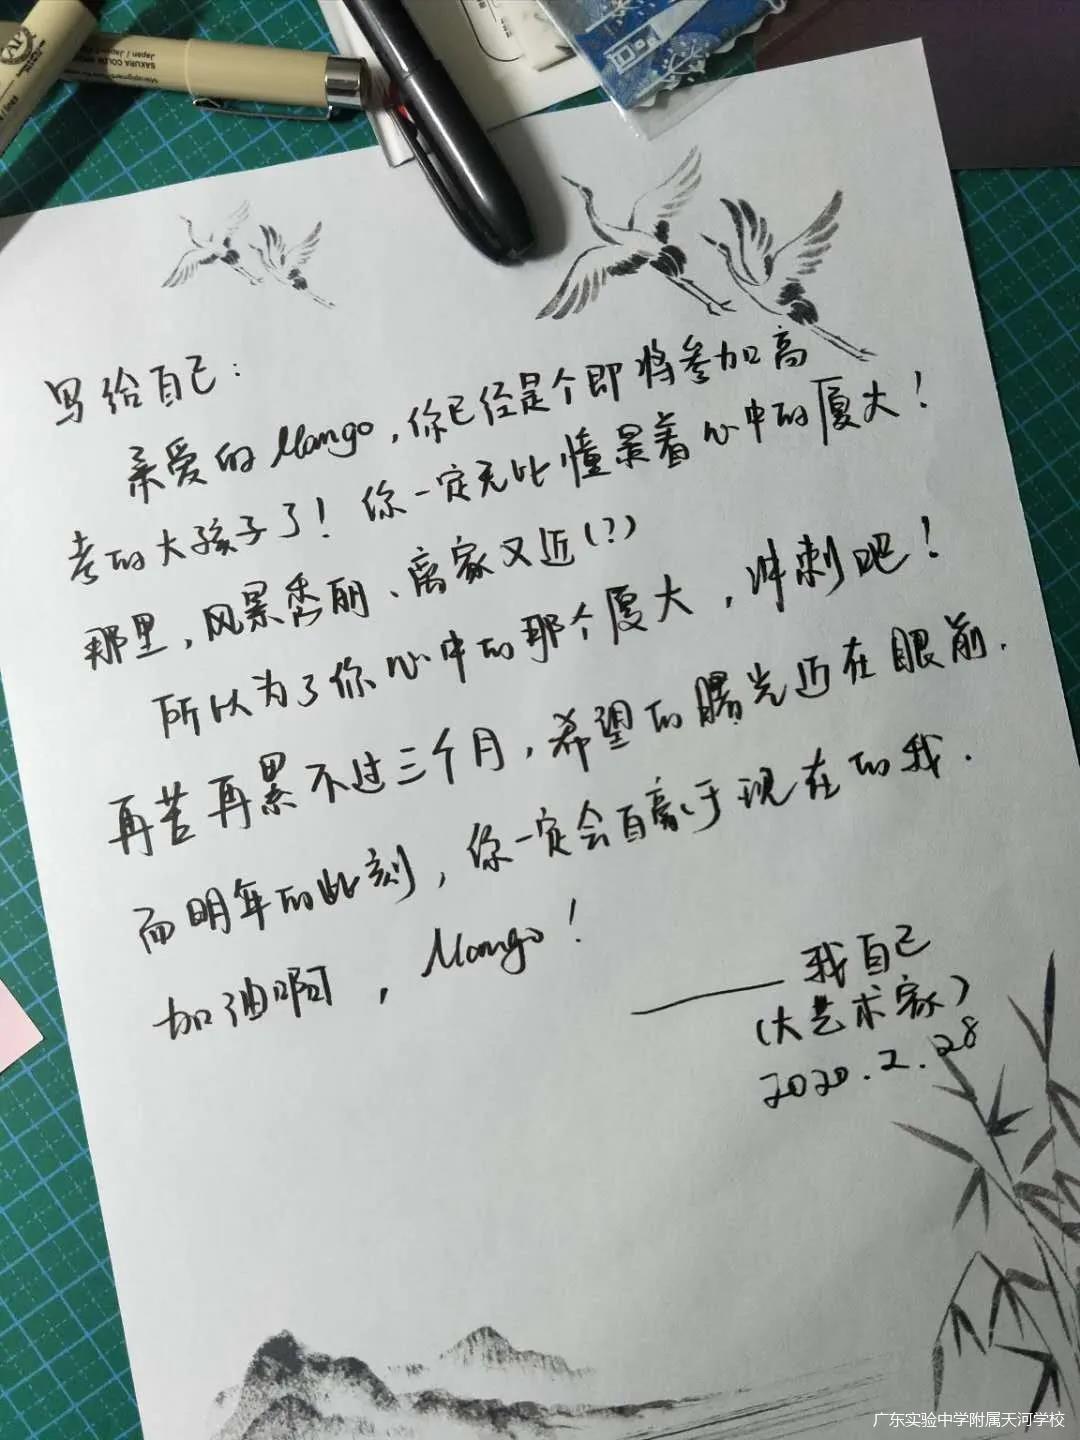 SAKURA COLOR
Japan / Japon
写给自己：
亲爱的Mango，你已经是个即将参加高
考的大孩子了！你一定无比憧景着心中的厦大！
那里，风景秀丽、离家又近（？）
所以为了你心中的那个厦大，冲刺吧！
再苦再累不过三个月，希望的曙光近在眼前．
而明年的此刻，你一定会自豪于现在的我．
加油啊，Mango！
——我自己
（大艺术家）
2020.2.28
广东实验中学附属天河学校